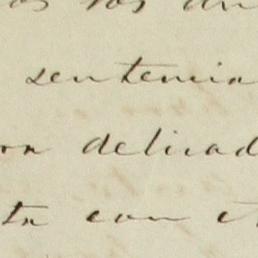 os vos
sentencia
ora delicad
ta con